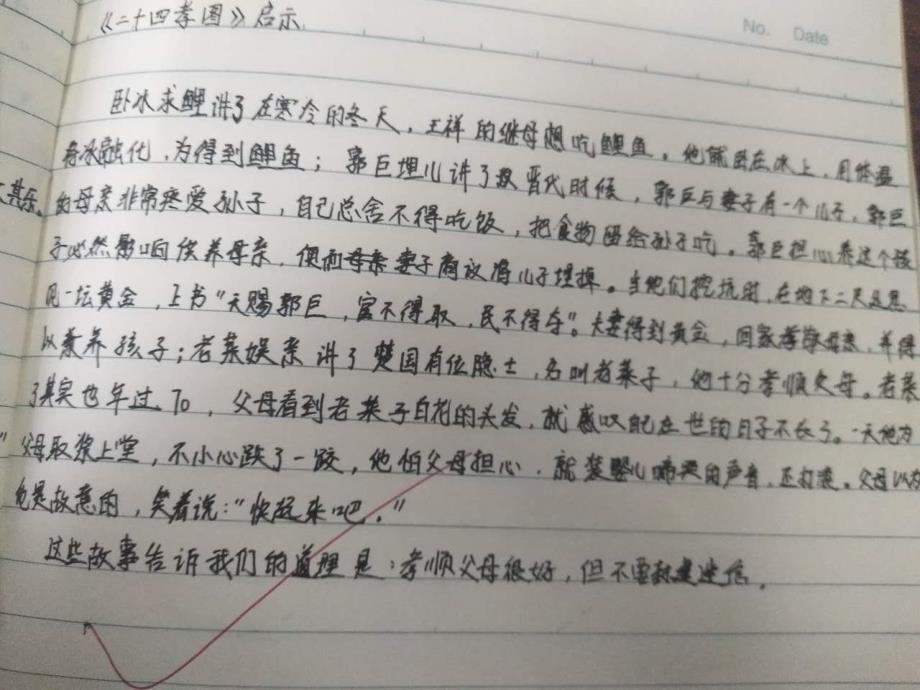 《二十四孝图》启示
No. Date
卧冰求鲤讲了在寒冷的冬天，王祥的继母想吃鲤鱼。他就卧在冰上，用体温
将冰融化，为得到鲤鱼；郭巨埋儿讲了晋代时候，郭巨与妻子有一个儿子，郭巨
其乐。
的母亲非常疼爱孙子，自己总舍不得吃饭，把食物留给孙子吃。郭巨担心养这个孩
子必然影响供养母亲，便而妻子商议将儿子埋掉。当他们挖坑时，在地下二尺忽见
见一坛黄金，上书“天赐郭巨，官不得取，民不得夺”。夫妻得到黄金，回家孝敬母亲，并得
以兼养孩子；老莱娱亲讲了楚国有位隐士，名叫老莱子，他十分孝顺父母。老莱
了其实也年过70，父母看到老莱子白花的头发，就感叹自己在世的日子不长了。一天他为
父母取浆上堂，不小心跌了一跤，他怕父母担心，就装婴儿啼哭的声音，还打滚。父母以为
他是故意的，笑着说：“快起来吧。”
这些故事告诉我们的道理是：孝顺父母很好，但不要封建迷信。